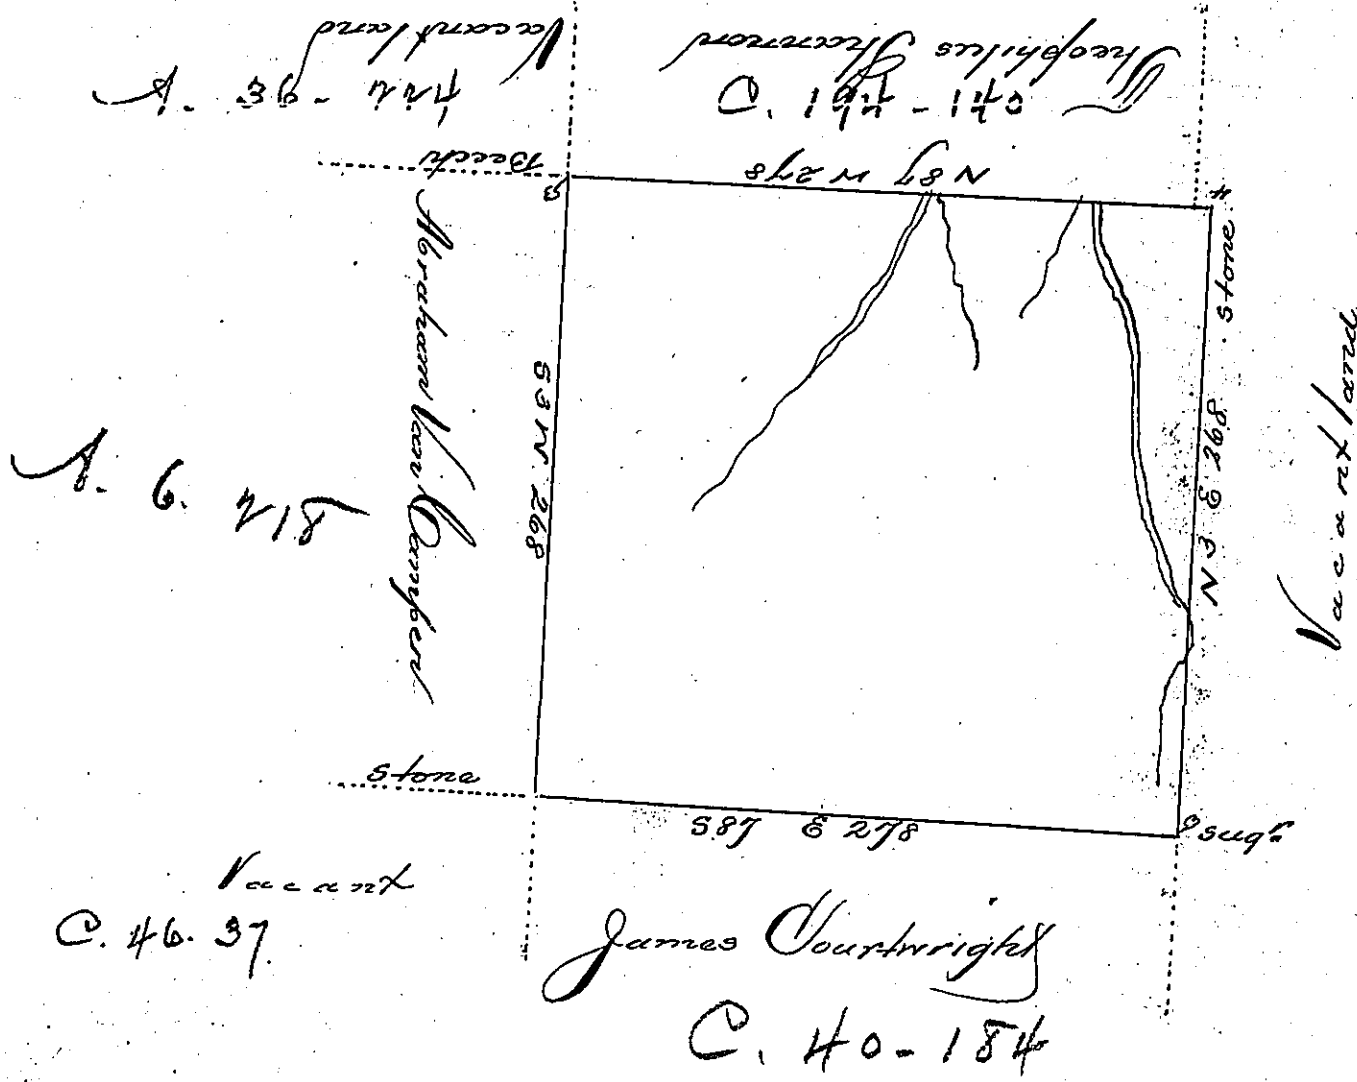 Vacant land
A. 39 - 422
Theophilus Shannon
C. 194 - 140
Beech
3
N 87 W 278
4
stone
Abraham Van Campen
S 3 W 268
N 3 E 268
Vacant land
A. 6. 218
stone
S 87 E 278
sugr
Vacant
C. 46. 37
James Courtwright
C. 40 - 184